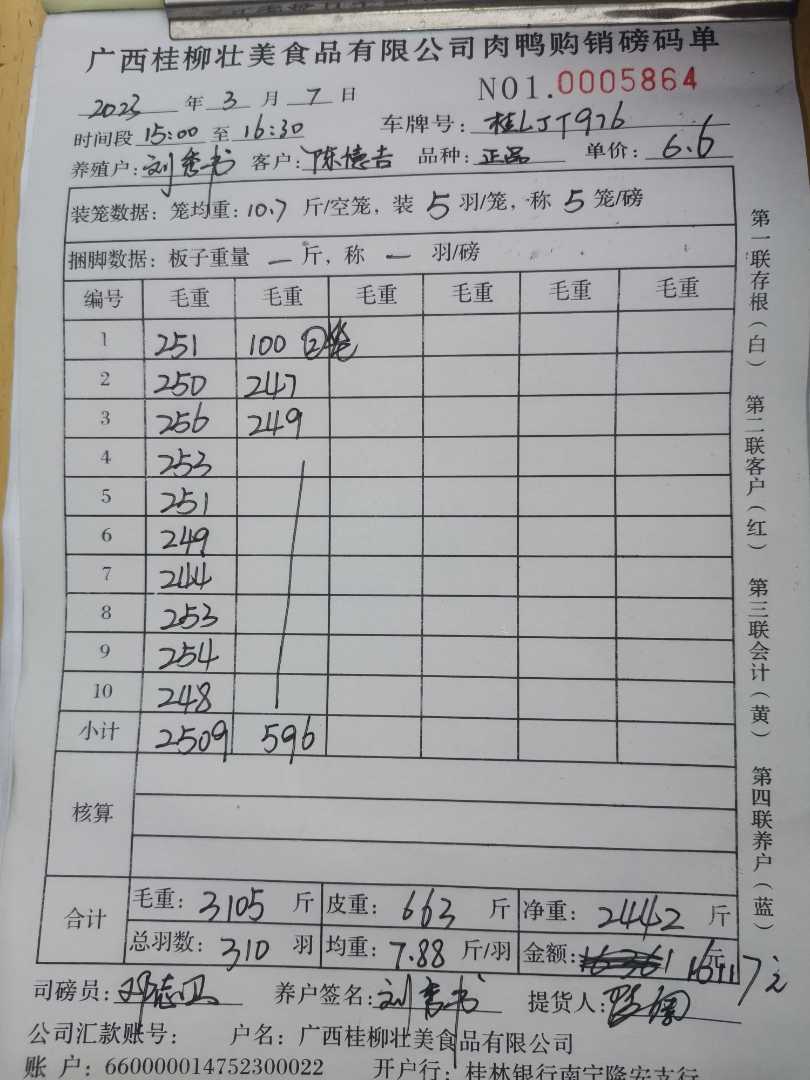 广西桂柳壮美食品有限公司肉鸭购销磅码单
NO1.0005864
2023 年 3 月 7 日
时间段 15:00 至 16:30 车牌号: 桂LJT976
养殖户: 刘秀书 客户: 陈德吉 品种: 正品 单价: 6.6
装笼数据: 笼均重: 10.7 斤/空笼, 装 5 羽/笼, 称 5 笼/磅
捆脚数据: 板子重量 — 斤, 称 — 羽/磅
编号 毛重 毛重 毛重 毛重 毛重 毛重
1 251 100 ②笼
2 250 247
3 256 249
4 253
5 251
6 249
7 244
8 253
9 254
10 248
小计 2509 596
核算
合计 毛重: 3105 斤 皮重: 663 斤 净重: 2442 斤
总羽数: 310 羽 均重: 7.88 斤/羽 金额: 16117 元
司磅员: 养户签名: 刘秀书 提货人:
公司汇款账号: 户名: 广西桂柳壮美食品有限公司
账 户: 660000014752300022 开户行: 桂林银行南宁隆安支行
第一联存根(白) 第二联客户(红) 第三联会计(黄) 第四联养户(蓝)